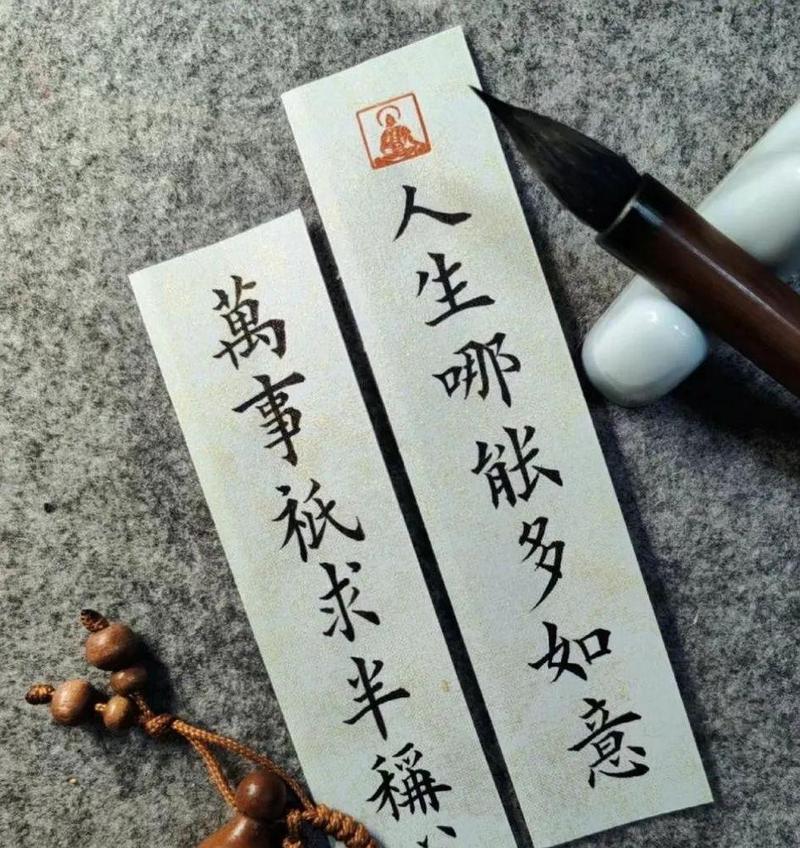 人生哪能多如意
萬事祇求半稱